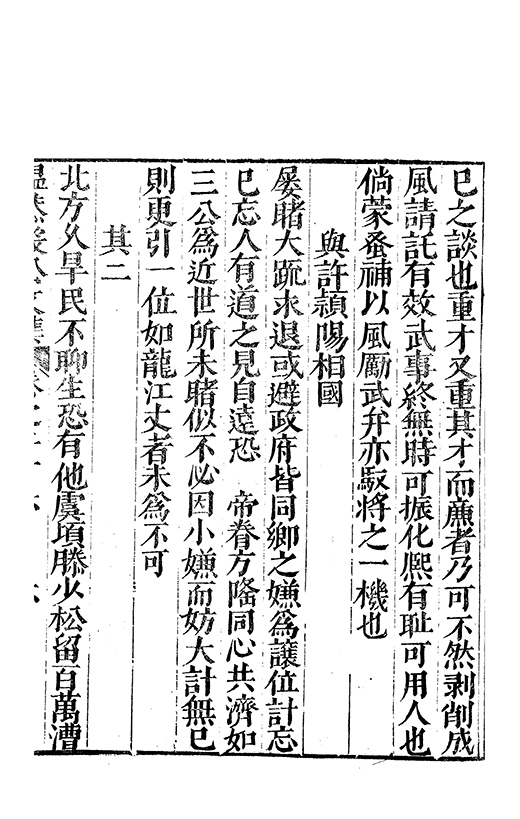 已之談也重才又重其才而廉者乃可不然剥削成
風請託有效武事終無時可振化熙有耻可用人也
倘蒙蚤補以風勵武弁亦馭將之一機也
與許頴陽相國
屡睹大䟽求退或避政府皆同鄉之嫌爲讓位計忘
已忘人有道之見自遠恐　帝眷方隆同心共濟如
三公爲近世所未睹似不必因小嫌而妨大計無已
則更引一位如龍江丈者未爲不可
其二
北方久旱民不聊生恐有他虞項滕少松留百萬漕